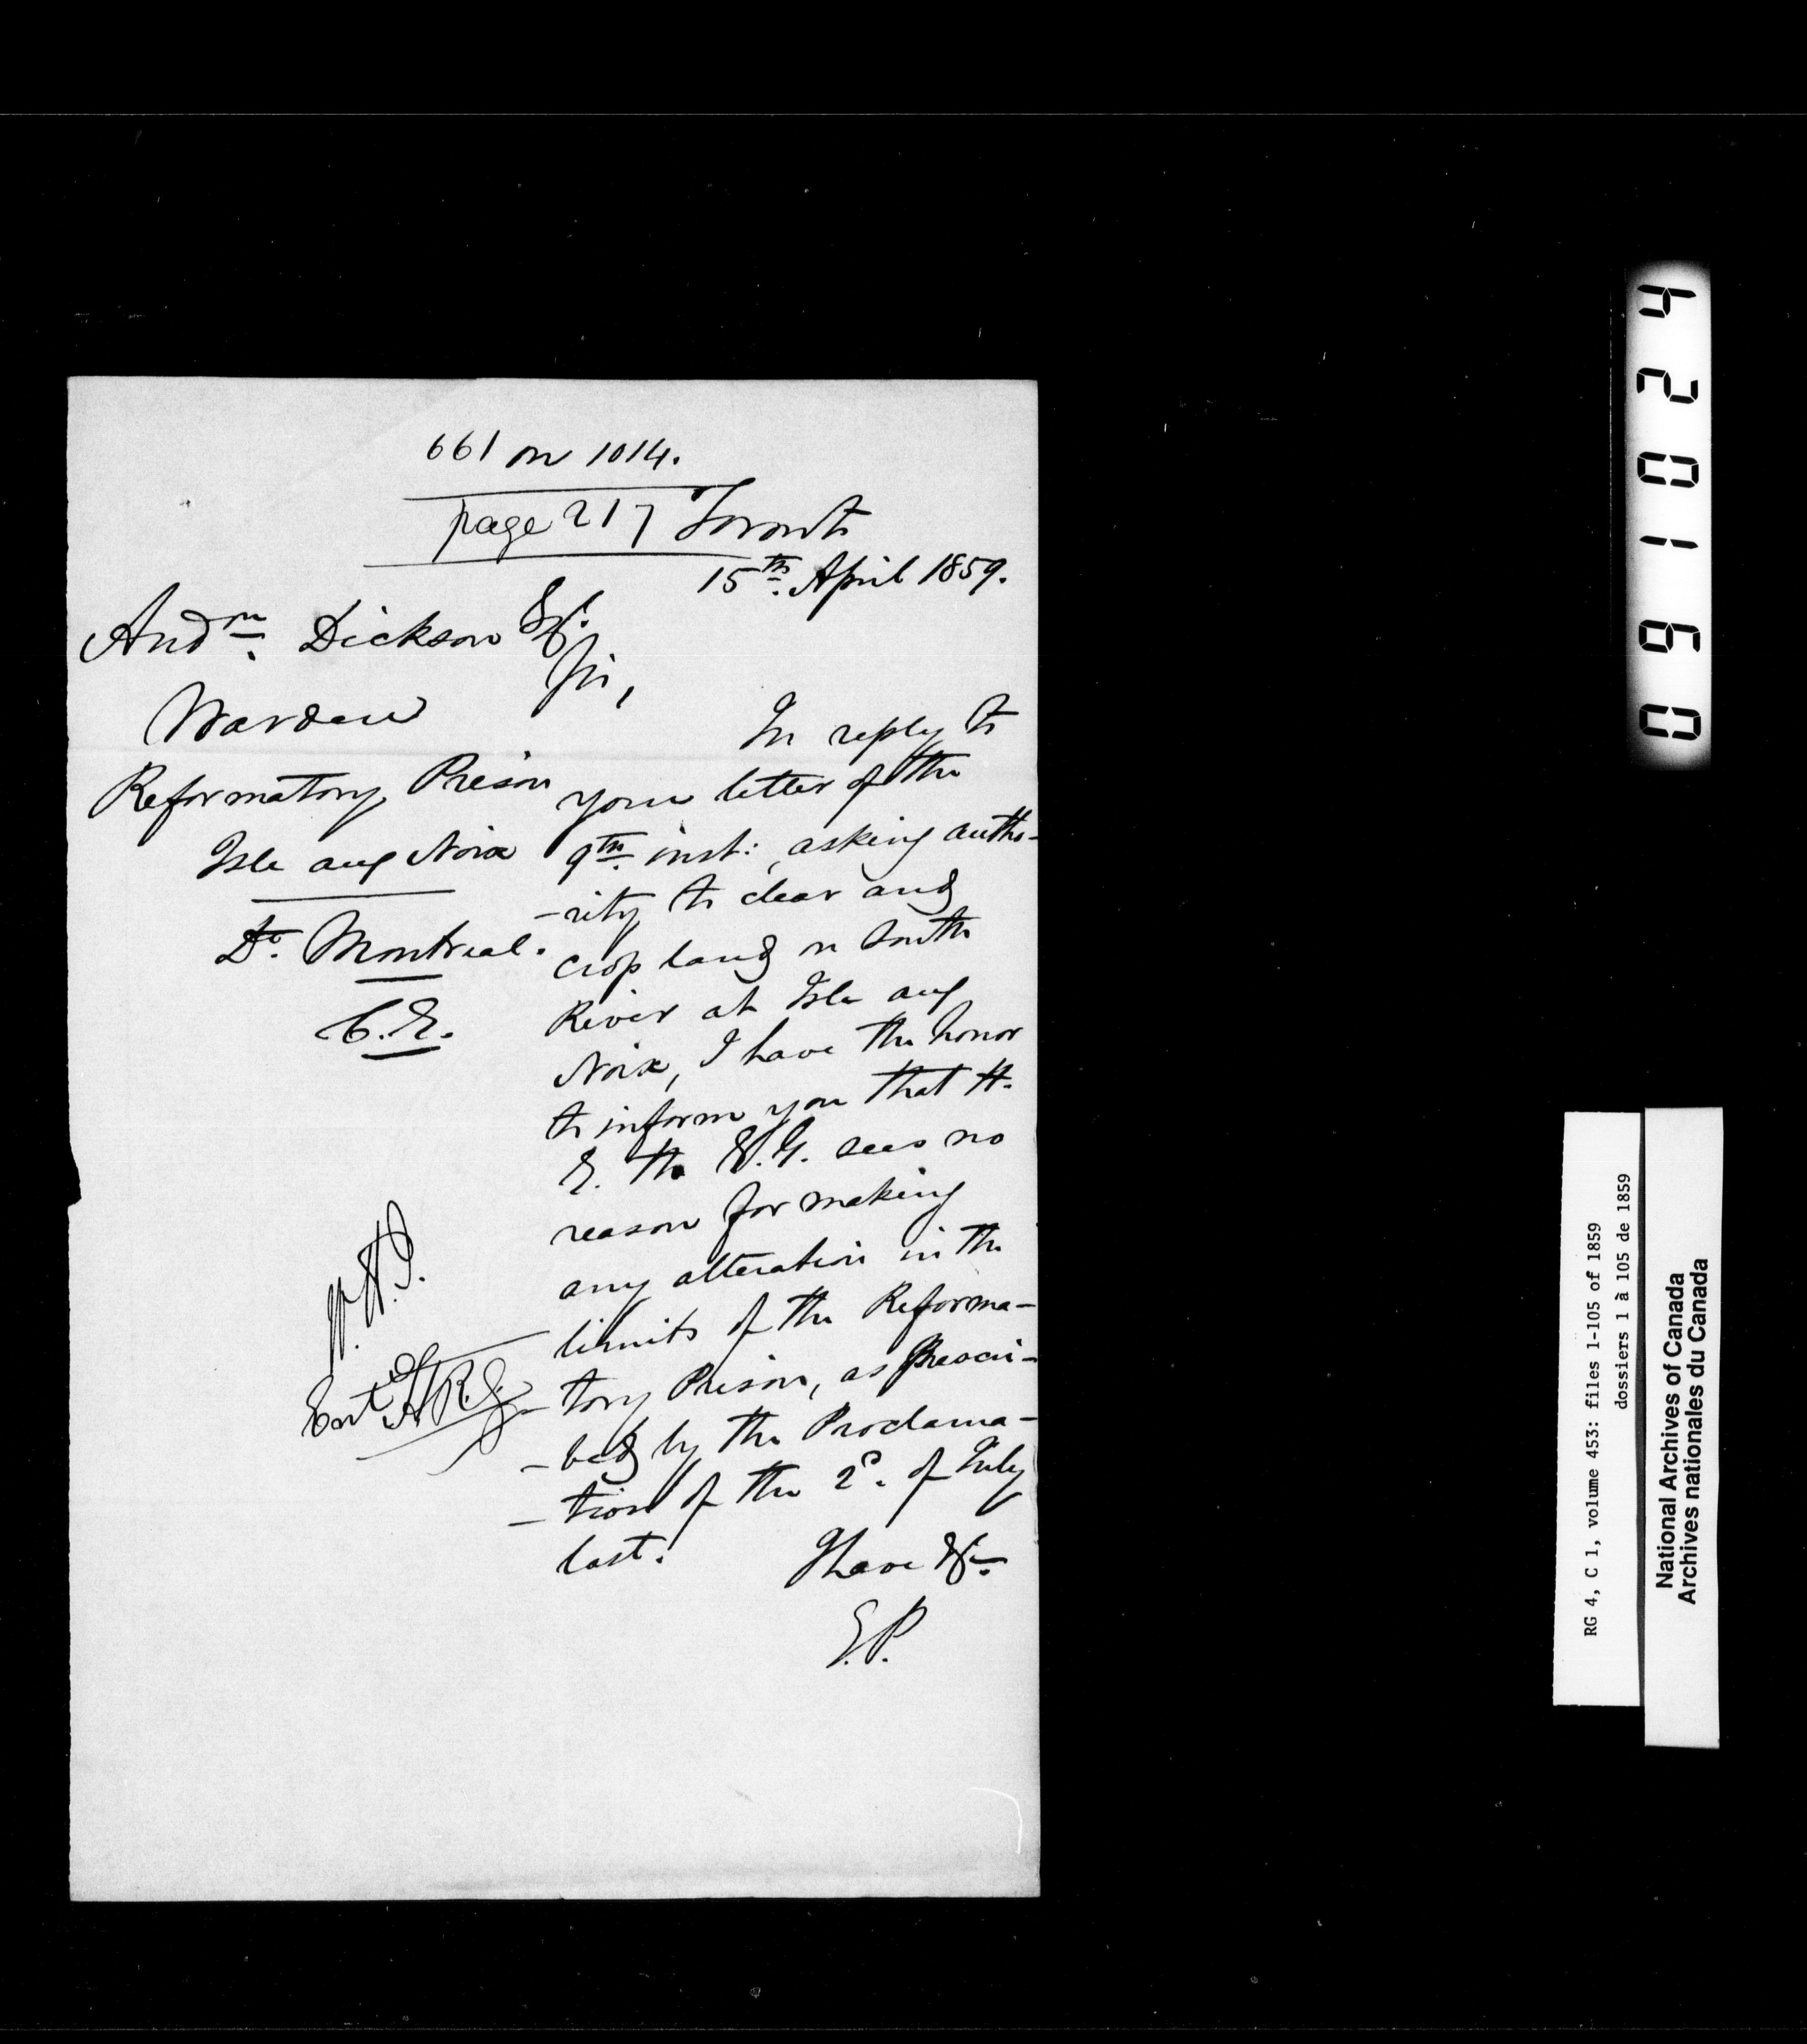 661 on 1014.
page 217
Toronto
15th. April 1859.
Andw. Dickson Esq.
Warden
Reformatory Prison
Isle aux Noix
Dt. Montreal.
C.E.
Sir,
In reply to
your letter of the
9th. inst:, asking autho-
-rity to clear and
crop land on South
River at Isle aux
Noix, I have the honor
to inform you that H.
E. the G.G. sees no
reason for making
any alteration in the
limits of the Reforma-
tory Prison, as prescri-
-bed by the Proclama-
-tion of the 2d. of July
last.
I have &c.
E.P.
Entd
042019 60
RG 4, C 1, volume 453: files 1-105 of 1859
dossiers 1 à 105 de 1859
National Archives of Canada
Archives nationales du Canada